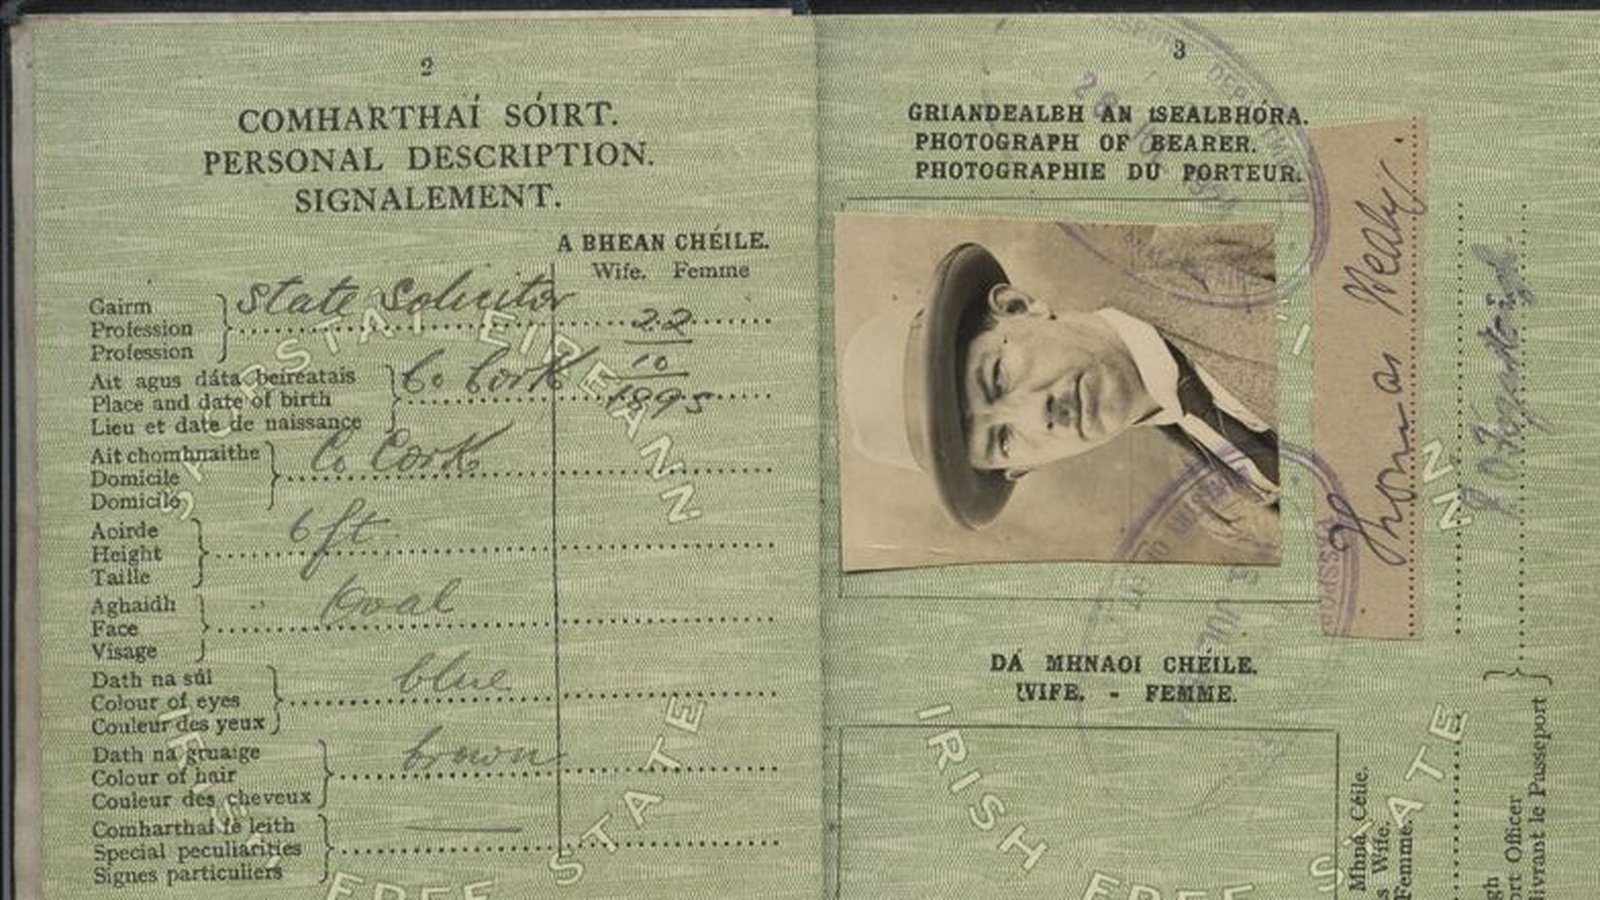 2
COMHARTHAÍ SÓIRT.
PERSONAL DESCRIPTION.
SIGNALEMENT.
A BHEAN CHÉILE.
Wife. Femme
Gairm
Profession
Profession
State Solicitor
Ait agus dáta beireatais
Place and date of birth
Lieu et date de naissance
Co Cork
22
10
1895
Ait chomhnaithe
Domicile
Domicile
Co Cork
Aoirde
Height
Taille
6 ft
Aghaidh
Face
Visage
Oval
Dath na súl
Colour of eyes
Couleur des yeux
blue
Dath na gruaige
Colour of hair
Couleur des cheveux
brown
Comharthaí fé leith
Special peculiarities
Signes particuliers
SAORSTAT EIREANN
IRISH FREE STATE
3
GRIANDEALBH AN tSEALBHÓRA.
PHOTOGRAPH OF BEARER.
PHOTOGRAPHIE DU PORTEUR.
Thomas Healy.
DÁ MHNAOI CHÉILE.
WIFE. - FEMME.
IRISH STATE
Mhná Céile.
s Wife.
Femme.
ort Officer
livrant le Passeport